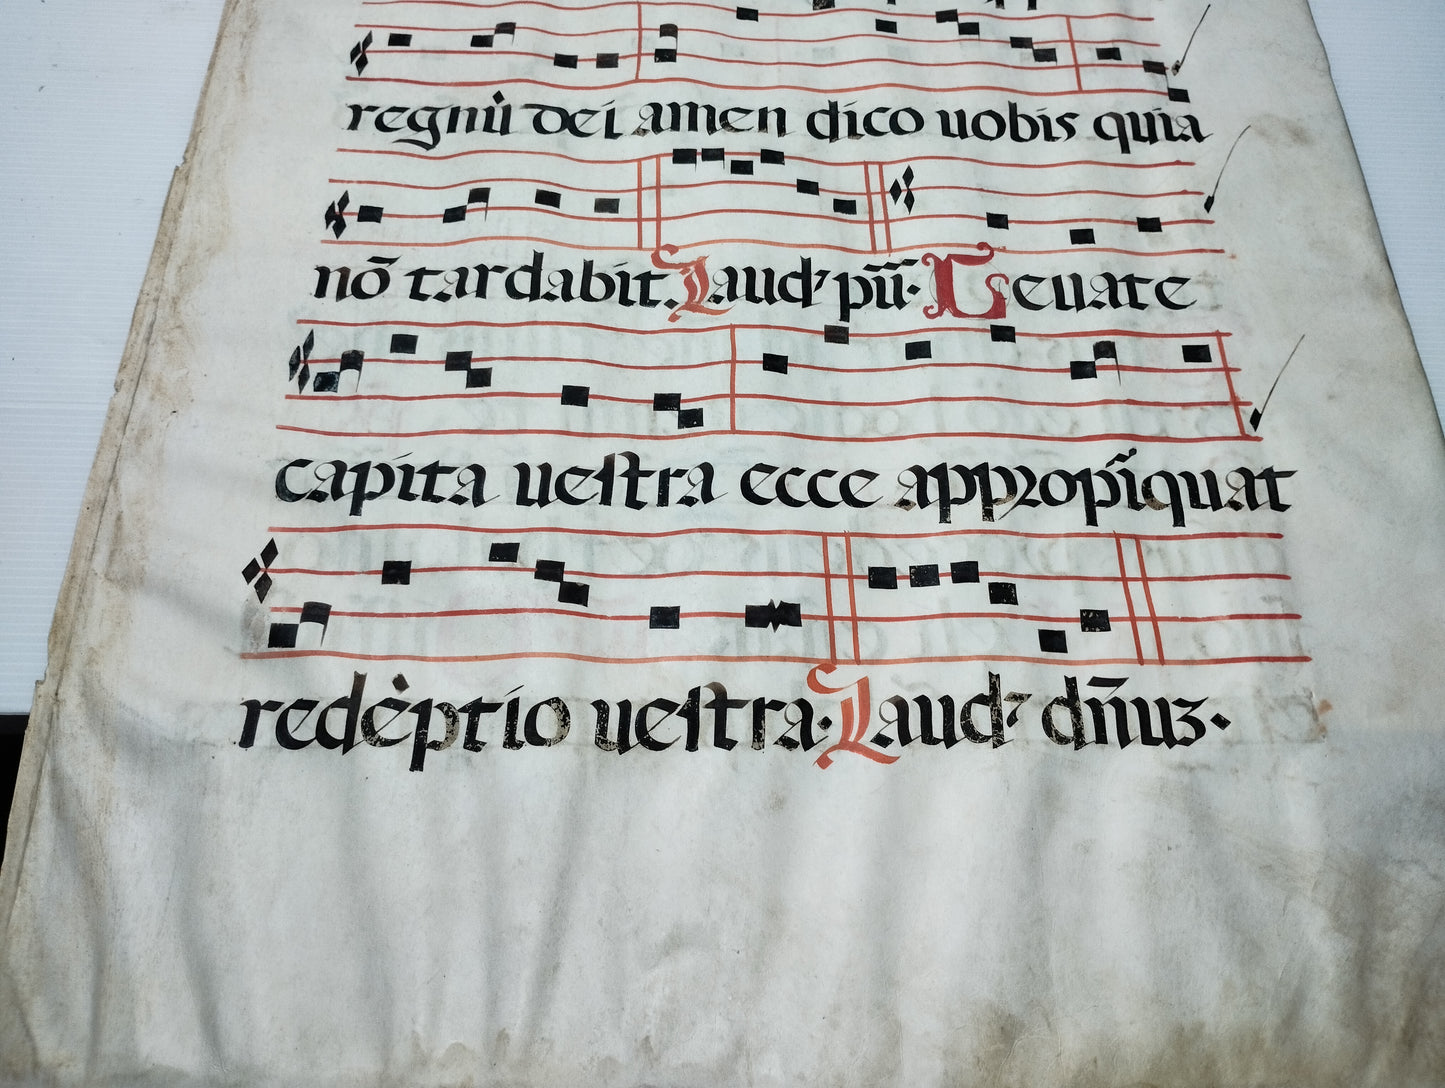 regnu̇ dei amen dico uobis quia
nō tardabit. Laudꝰ pūī. Leuate
capita ueſtra ecce appropīquat
redėptio ueſtra. Laudꝰ dn̄uʒ.